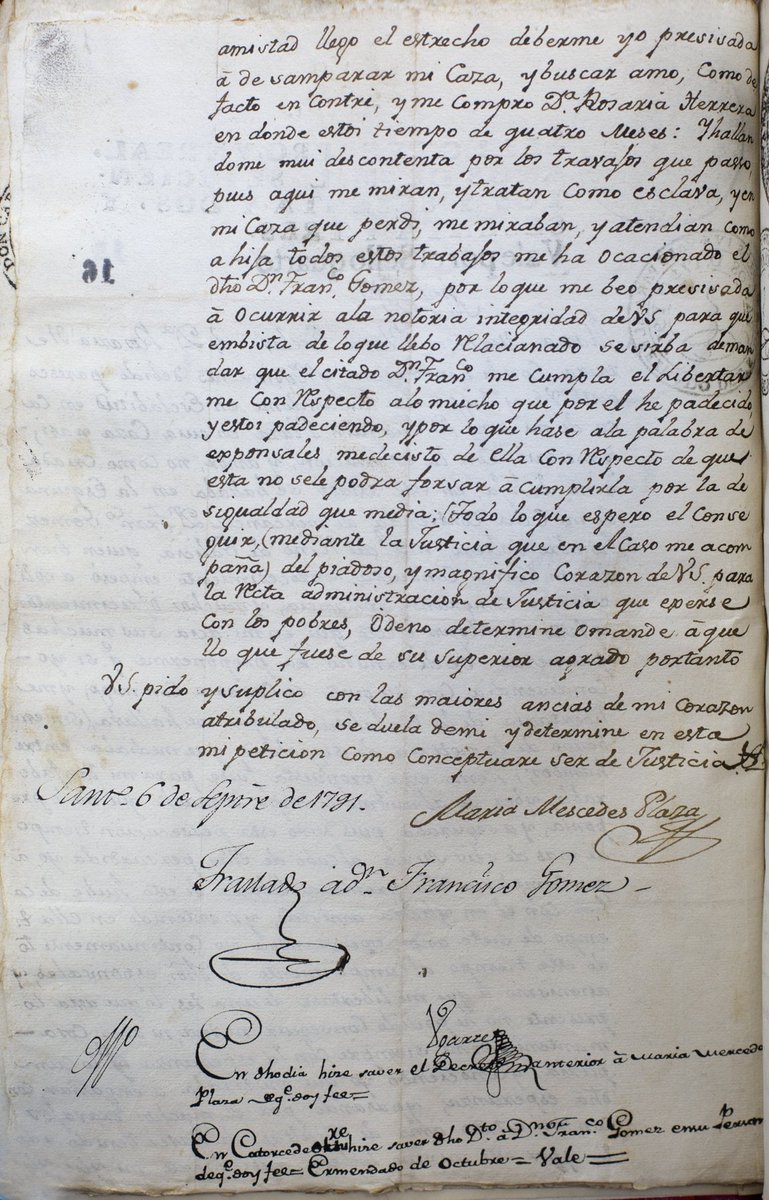 amistad llego el estrecho deberme yo presisada
â de samparar mi Caza, y buscar amo, como de
facto en contre, y me Compro D.ª Rosaria Herrera
en donde estoi tiempo de quatro Meses: Yhallan
dome mui descontenta por los travajos que passo,
pues aqui me miran, y tratan como esclava, y en
mi Caza que perdi, me miraban, y atendian como
a hija todos estos trabajos me ha ocacionado el
dho D.n Fran.co Gomez, por lo que me beo presisada
â ocurrir ala notoria integridad de VS para que
embista de loque llebo relacionado se sirba deman
dar que el citado D.n Fran.co me cumpla el Libertar
me con respecto alo mucho que por el he padecido
y estoi padeciendo, y por lo que hase ala palabra de
exponsales me decisto de ella con respecto de que
esta no sele podra forsar â cumplirla por la de
sigualdad que media: Todo lo que espero el conse
guir, (mediante la Justicia que en el caso me acom
paña) del piadoso, y magnifico Corazon de VS. para
la recta administracion de Justicia que experse
con los pobres, ô deno determine o mande â que
llo que fuese de su superior agrado portanto
VS. pido y suplico con las maiores ancias de mi Corazon
atribulado, se duela demi y determine en esta
mi peticion como conceptuare ser de Justicia
Sant.o 6 de Sptre de 1791.
Maria Mescedes Plaza
Traslado a d.n Francisco Gomez
16
Ugarte
En dho dia hize saver el Decreto anterior â Maria Mercedes
Plaza deq.e doy fee=
En Catorce de hize saver dho D.to â D.n Fran.co Gomez en su Person
deq.e doy fee= Enmendado de Octubre = Vale =